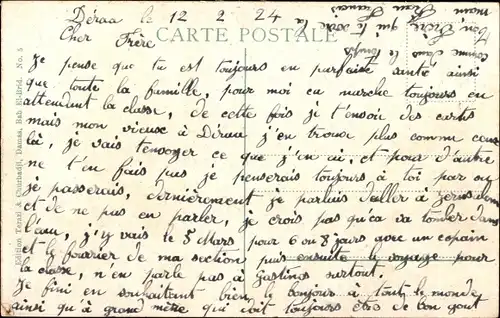 Déraa le 12 2 24
Cher Frère
CARTE POSTALE
je pense que tu est toujours en parfaite santé ainsi
que toute la famille, pour moi ça marche toujours en
attendant la classe, de cette fois je t'envoi des cartes
mais mon vieux à Déraa j'en trouve plus comme ceux
là, je vais t'envoyer ce que j'en ai, et pour d'autre
ne t'en fais pas je penserais toujours à toi par ou
je passerais, dernièrement je parlais d'aller à Jérusalem
et de ne pas en parler, je crois pas qu'ça va tomber dans
l'eau, j'y vais le 5 Mars pour 6 ou 8 jours avec un copain
et le fourrier de ma section puis ensuite le voyage pour
la classe, n'en parle pas à Gastinos surtout.
je fini en souhaitant bien le bonjours à tout le monde
ainsi qu'à grand mère qui doit toujours être de bon gout
comme dans le temps
ton Frère qui te serre la
Edition Terzi & Chouhadji, Damas, Bab El-Brid. No. 5